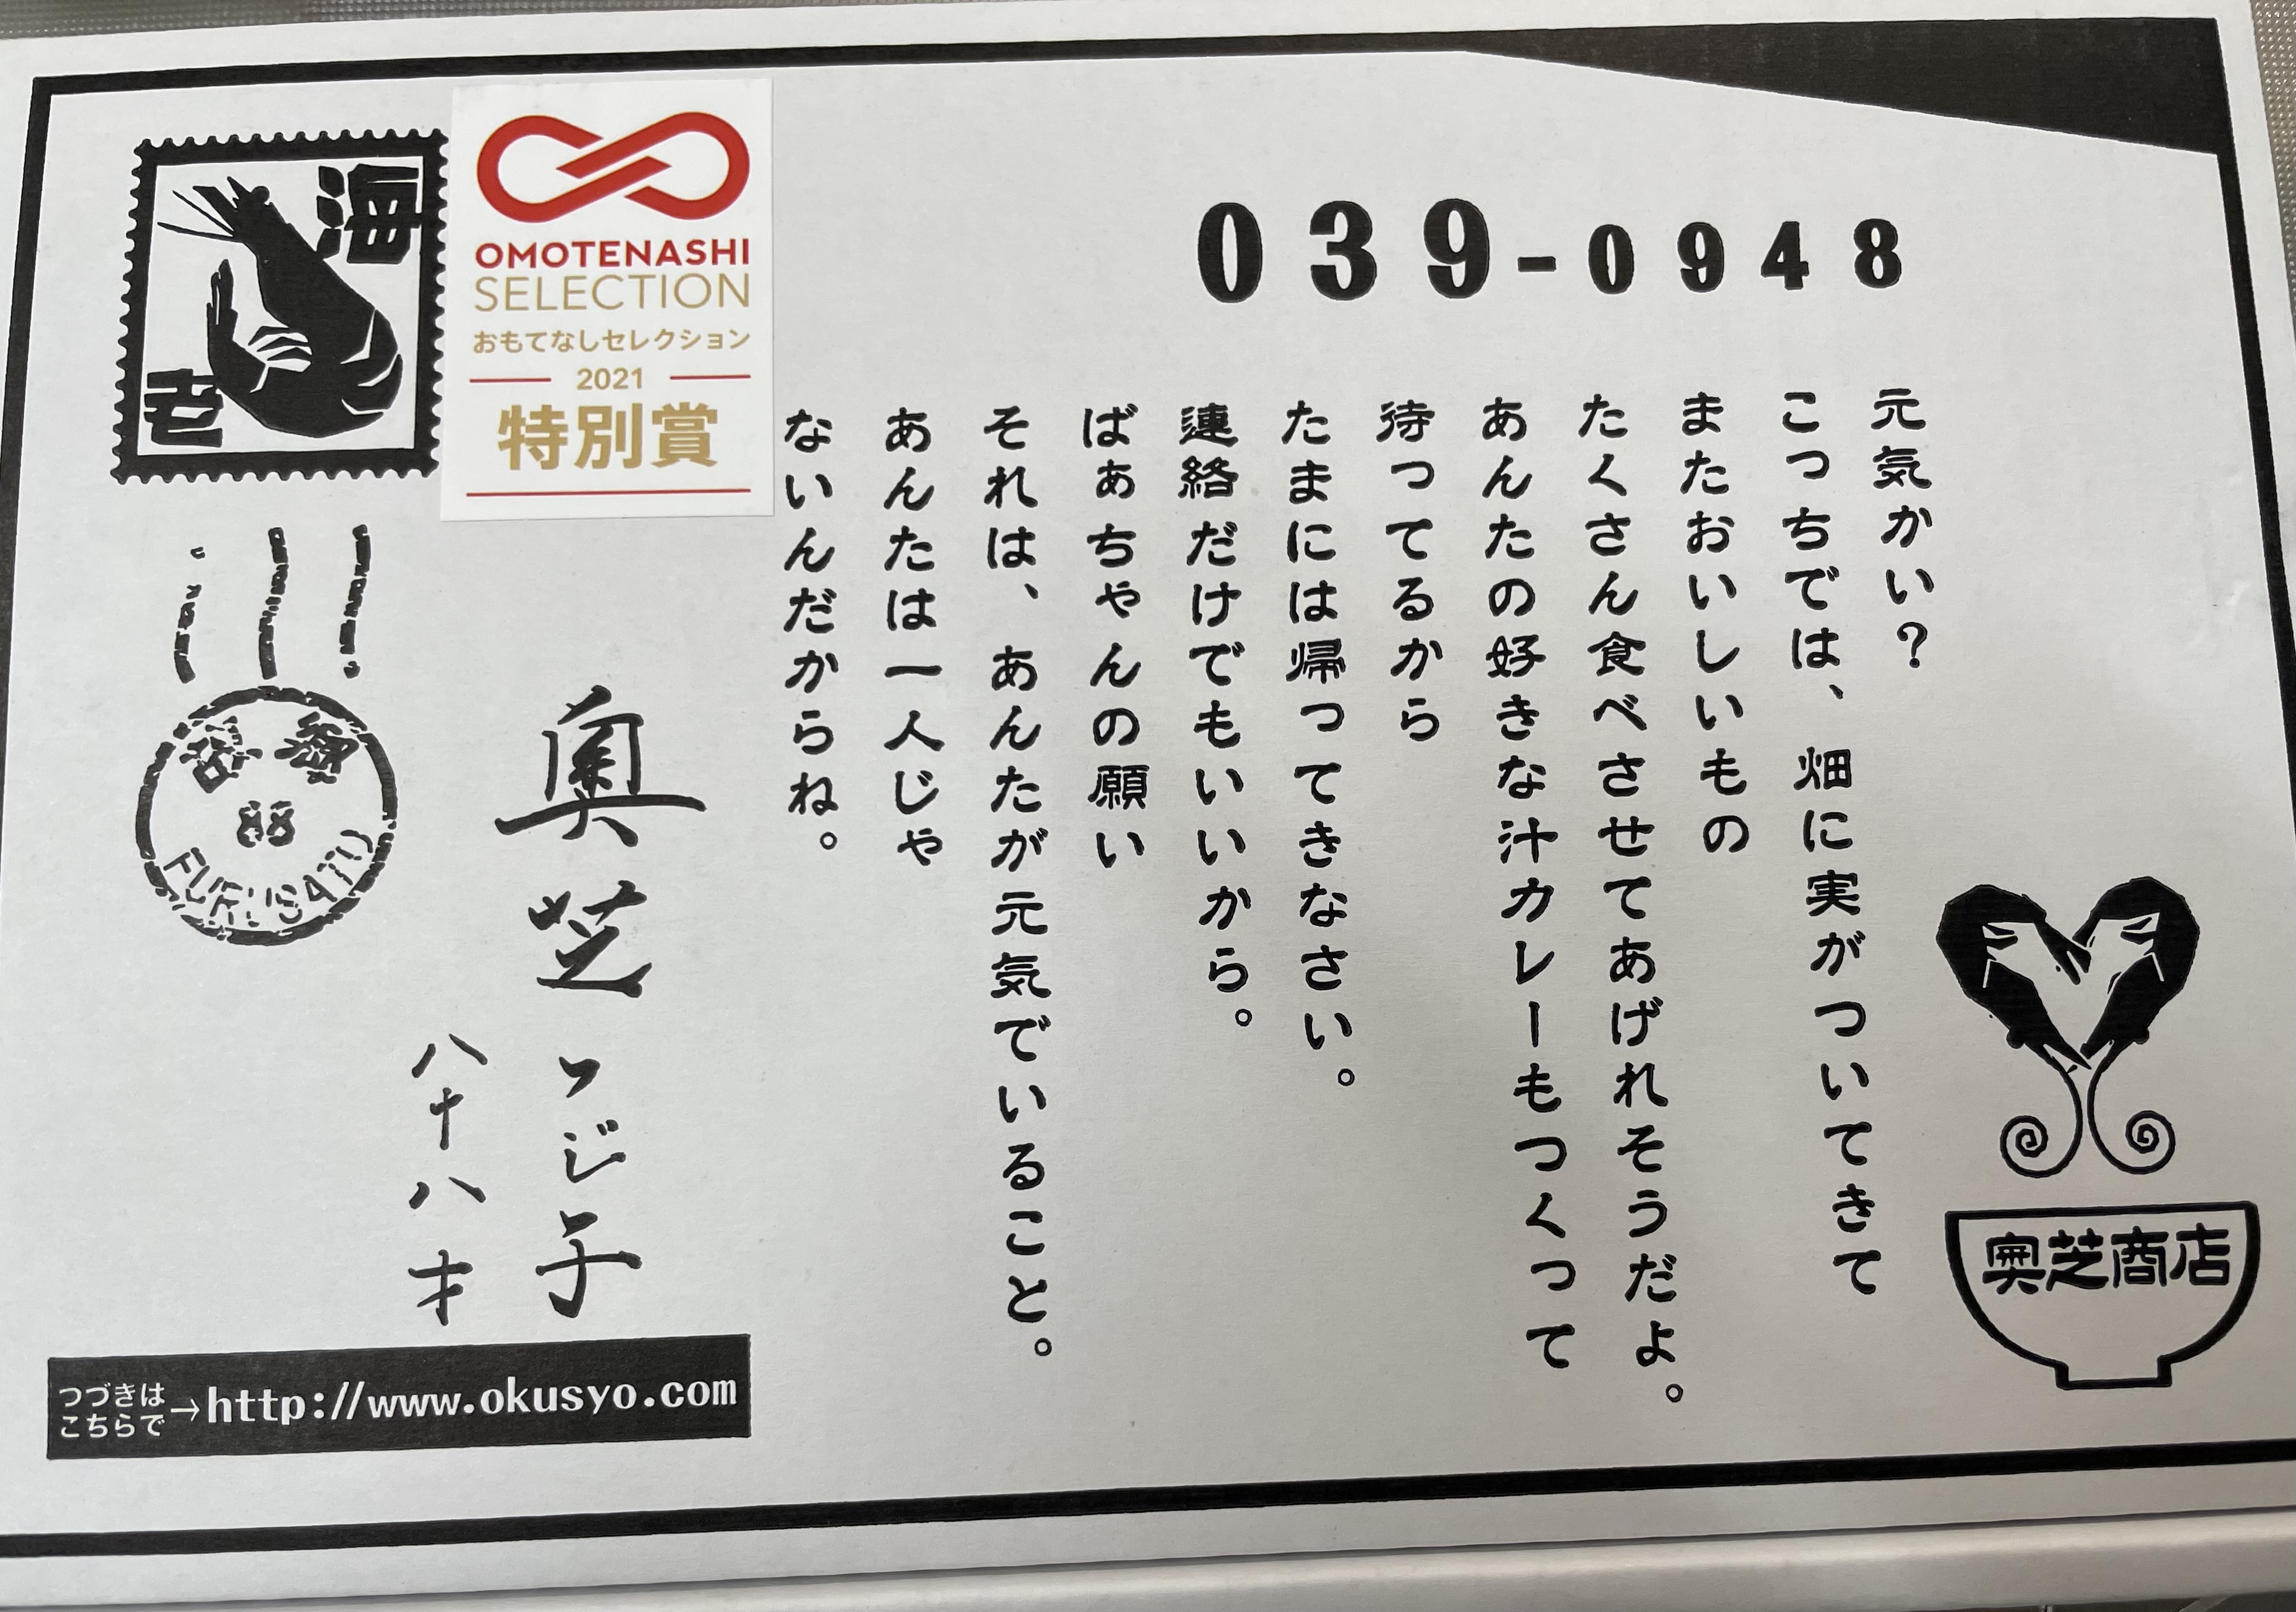 039-0948
元気かい？
こっちでは、畑に実がついてきて
またおいしいもの
たくさん食べさせてあげれそうだよ。
あんたの好きな汁カレーもつくって
待ってるから
たまには帰ってきなさい。
連絡だけでもいいから。
ばぁちゃんの願い
それは、あんたが元気でいること。
あんたは一人じゃ
ないんだからね。
奥芝商店
海老
OMOTENASHI
SELECTION
おもてなしセレクション
2021
特別賞
奥芝つじ子
八十八才
88
FURUSATO
つづきは
こちらで
→http://www.okusyo.com